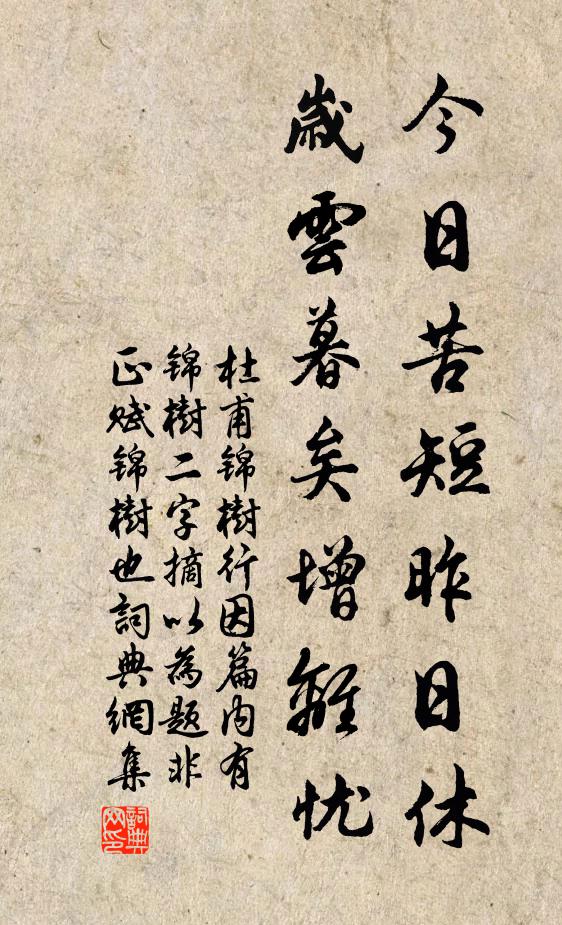 今日苦短昨日休
歲雲暮矣增離忧
杜甫錦樹行因篇内有
錦樹二字摘以為题非
正赋錦樹也詞典網集
詞典网印